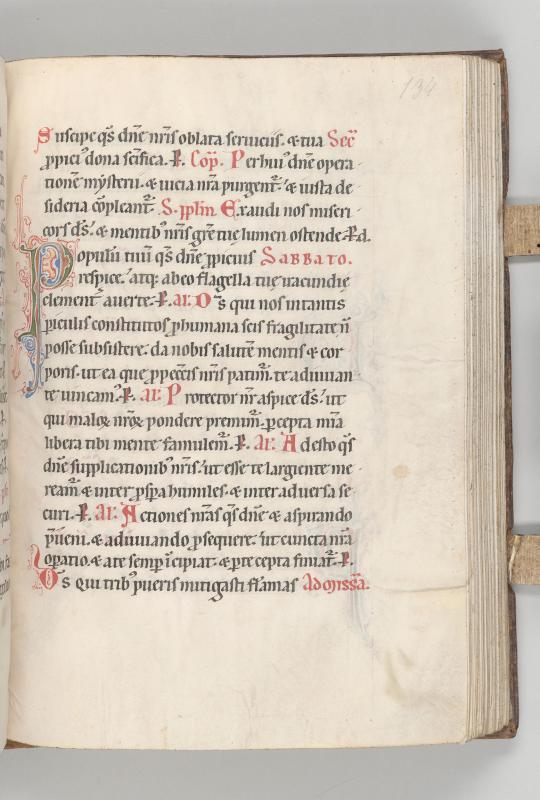 134
Suscipe qs dñe nr̃is oblata seruiciis. & tua Sec̃
ꝓpici' dona sc̃ifica. P. Cōp̃. Per hui' dñe opera
tionē mẏsterii. & uicia nr̃a purgent̃. & iusta de
sideria cōpleant̃. S. ppłm Exaudi nos miseri
cors ds̃. & mentib' nr̃is grē tuę lumen ostende. P. d.
Populū tuū qs dñe ꝓpicius Sabbato.
respice. atq; ab eo flagella tuę iracundię
clement̃ auerte. P. al'. Ds̃ qui nos in tantis
ꝑiculis constitutos ꝓ humana scis fragilitate ñ
posse subsistere. da nobis salutē mentis & cor
poris. ut ea que ꝓ peccis nr̃is patim̃. te adiuuan
te uincam'. P. al'. Protector nr̃ aspice ds̃. ut
qui malox nr̃ox pondere premim̃. percepta mĩa
libera tibi mente famulem̃. P. al'. Adesto qs
dñe supplicationib' nr̃is. ut esse te largiente me
ream̃ & inter ꝓspa humiles. & inter aduersa se
curi. P. al'. Actiones nr̃as qs dñe & aspirando
p̃ueni. & adiuuando ꝓsequere. ut cuncta nr̃a
opatio. & a te semp incipiat. & per te cepta finiat̃. P.
Ds̃ qui trib' pueris mitigasti flāmas Ad missā.